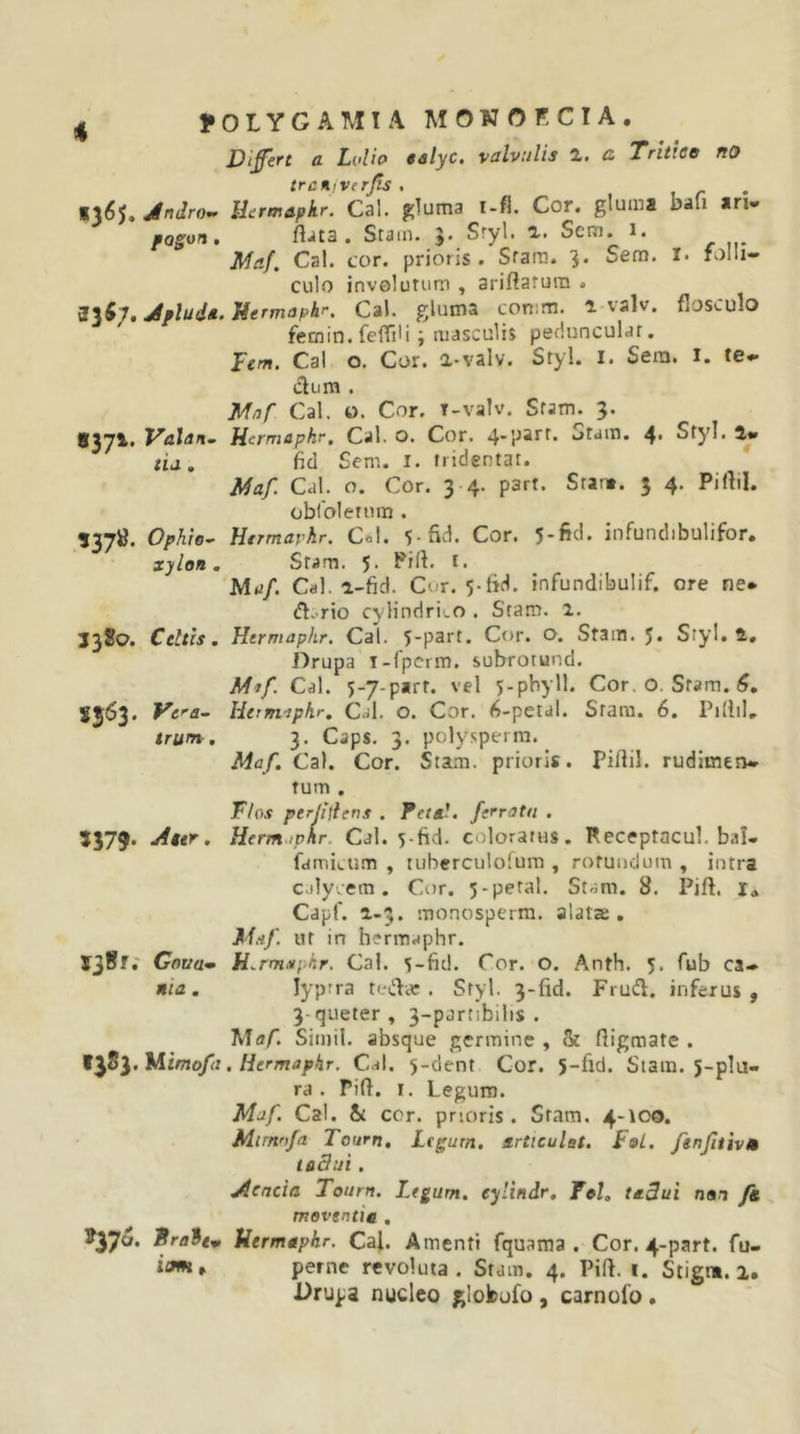 4 POLYGAMIA MONOECIA.
Differt a Lolio calyc. valvulis 2. a Tritico no
tranſverſis.
1365. Andro- Hermaphr. Cal. gluma 1-fl. Cor. gluma baſi ari-
pogon. ſtata. Stam. 3. Styl. 2. Sem. 1.
Maſ. Cal. cor. prioris. Stam. 3. Sem. 1. folli-
culo involutum, ariſtatum.
1367. Apluda. Hermaphr. Cal. gluma comm. 2 valv. flosculo
femin. ſeſſili; masculis peduncular.
Fem. Cal o. Cor. 2-valv. Styl. 1. Sem. 1. te-
ctum.
Maſ Cal. o. Cor. 1-valv. Stam. 3.
1371. Valan- Hermaphr. Cal. o. Cor. 4-part. Stam. 4. Styl. 2-
tia. fid Sem. 1. tridentat.
Maſ. Cal. o. Cor. 3-4. part. Stam. 3 4. Piſtil.
obſoletum.
1378. Ophio- Hermaphr. Cal. 5-fid. Cor. 5-fid. infundibulifor.
xylon. Stam. 5. Piſt. 1.
Maſ. Cal. 2-fid. Cor. 5-fid. infundibulif. ore ne-
ctario cylindrico. Stam. 2.
1380. Celtis. Hermaphr. Cal. 5-part. Cor. o. Stam. 5. Styl. 2.
Drupa 1-ſperm. subrotund.
Maſ. Cal. 5-7-part. vel 5-phyll. Cor. o. Stam. 6.
1363. Vera- Hermaphr. Cal. o. Cor. 6-petal. Stam. 6. Piſtil.
trum. 3. Caps. 3. polysperm.
Maſ. Cal. Cor. Stam. prioris. Piſtil. rudimen-
tum.
Flos perſiſtens. Petal. ſerrata.
1379. Acer. Hermaphr. Cal. 5-fid. coloratus. Receptacul. bal-
ſamicum, tuberculoſum, rotundum, intra
calycem. Cor. 5-petal. Stam. 8. Piſt. 1.
Capſ. 2-3. monosperm. alatæ.
Maſ. ut in hermaphr.
1381. Goua- Hermaphr. Cal. 5-fid. Cor. o. Anth. 5. ſub ca-
nia. lyptra tectæ. Styl. 3-fid. Fruct. inferus,
3-queter, 3-partibilis.
Maſ. Simil. absque germine, & ſtigmate.
1383. Mimoſa. Hermaphr. Cal. 5-dent Cor. 5-fid. Stam. 5-plu-
ra. Piſt. 1. Legum.
Maſ. Cal. & cor. prioris. Stam. 4-100.
Mimoſa Tourn. Legum. articulat. Fol. ſenſitiva
tactui.
Acacia Tourn. Legum. cylindr. Fol. tactui non ſe
moventia.
1376. Brabe- Hermaphr. Cal. Amenti ſquama. Cor. 4-part. ſu-
ium, perne revoluta. Stam. 4. Piſt. 1. Stigm. 2.
Drupa nucleo globoſo, carnoſo.